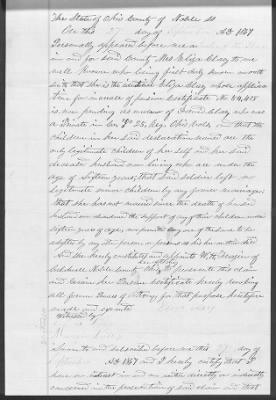 The State of Ohio County of Noble SS
On this 27 day of AD 1867
Personally appeared before me a
in and for said County Mrs Eliza Clary to me
well known who being first duly sworn
saith that she is the Eliza Clary whose applica
tion for increase of pension Certificate No 44,418
is now pending as widow of Clary who was
a Private in Co "I" 25 Reg. Ohio Vols, and that the
children in her said declaration named are the
only legitimate children of herself and her said
deceased husband now living who are under the
age of Sixteen years, that said soldier left no
legitimate minor children by any former marriage;
that she has not married since the death of her said
husband nor abandoned the support of any of their children under
sixteen years of age, nor permitted any one of the same to be
adopted by any other person or persons as his her or their child
And she hereby constitutes and appoints W. H.
Caldwell Noble County Ohio to present this claim
and receive her Pension Certificate hereby revoking
all former Powers of Attorney for that purpose heretofore
made and
Attested by
Sworn to and subscribed before me this 27 day of
AD 1867 and I hereby certify that I
have no interest in and am neither directly or indirectly
concerned in the prosecution of said claim and that